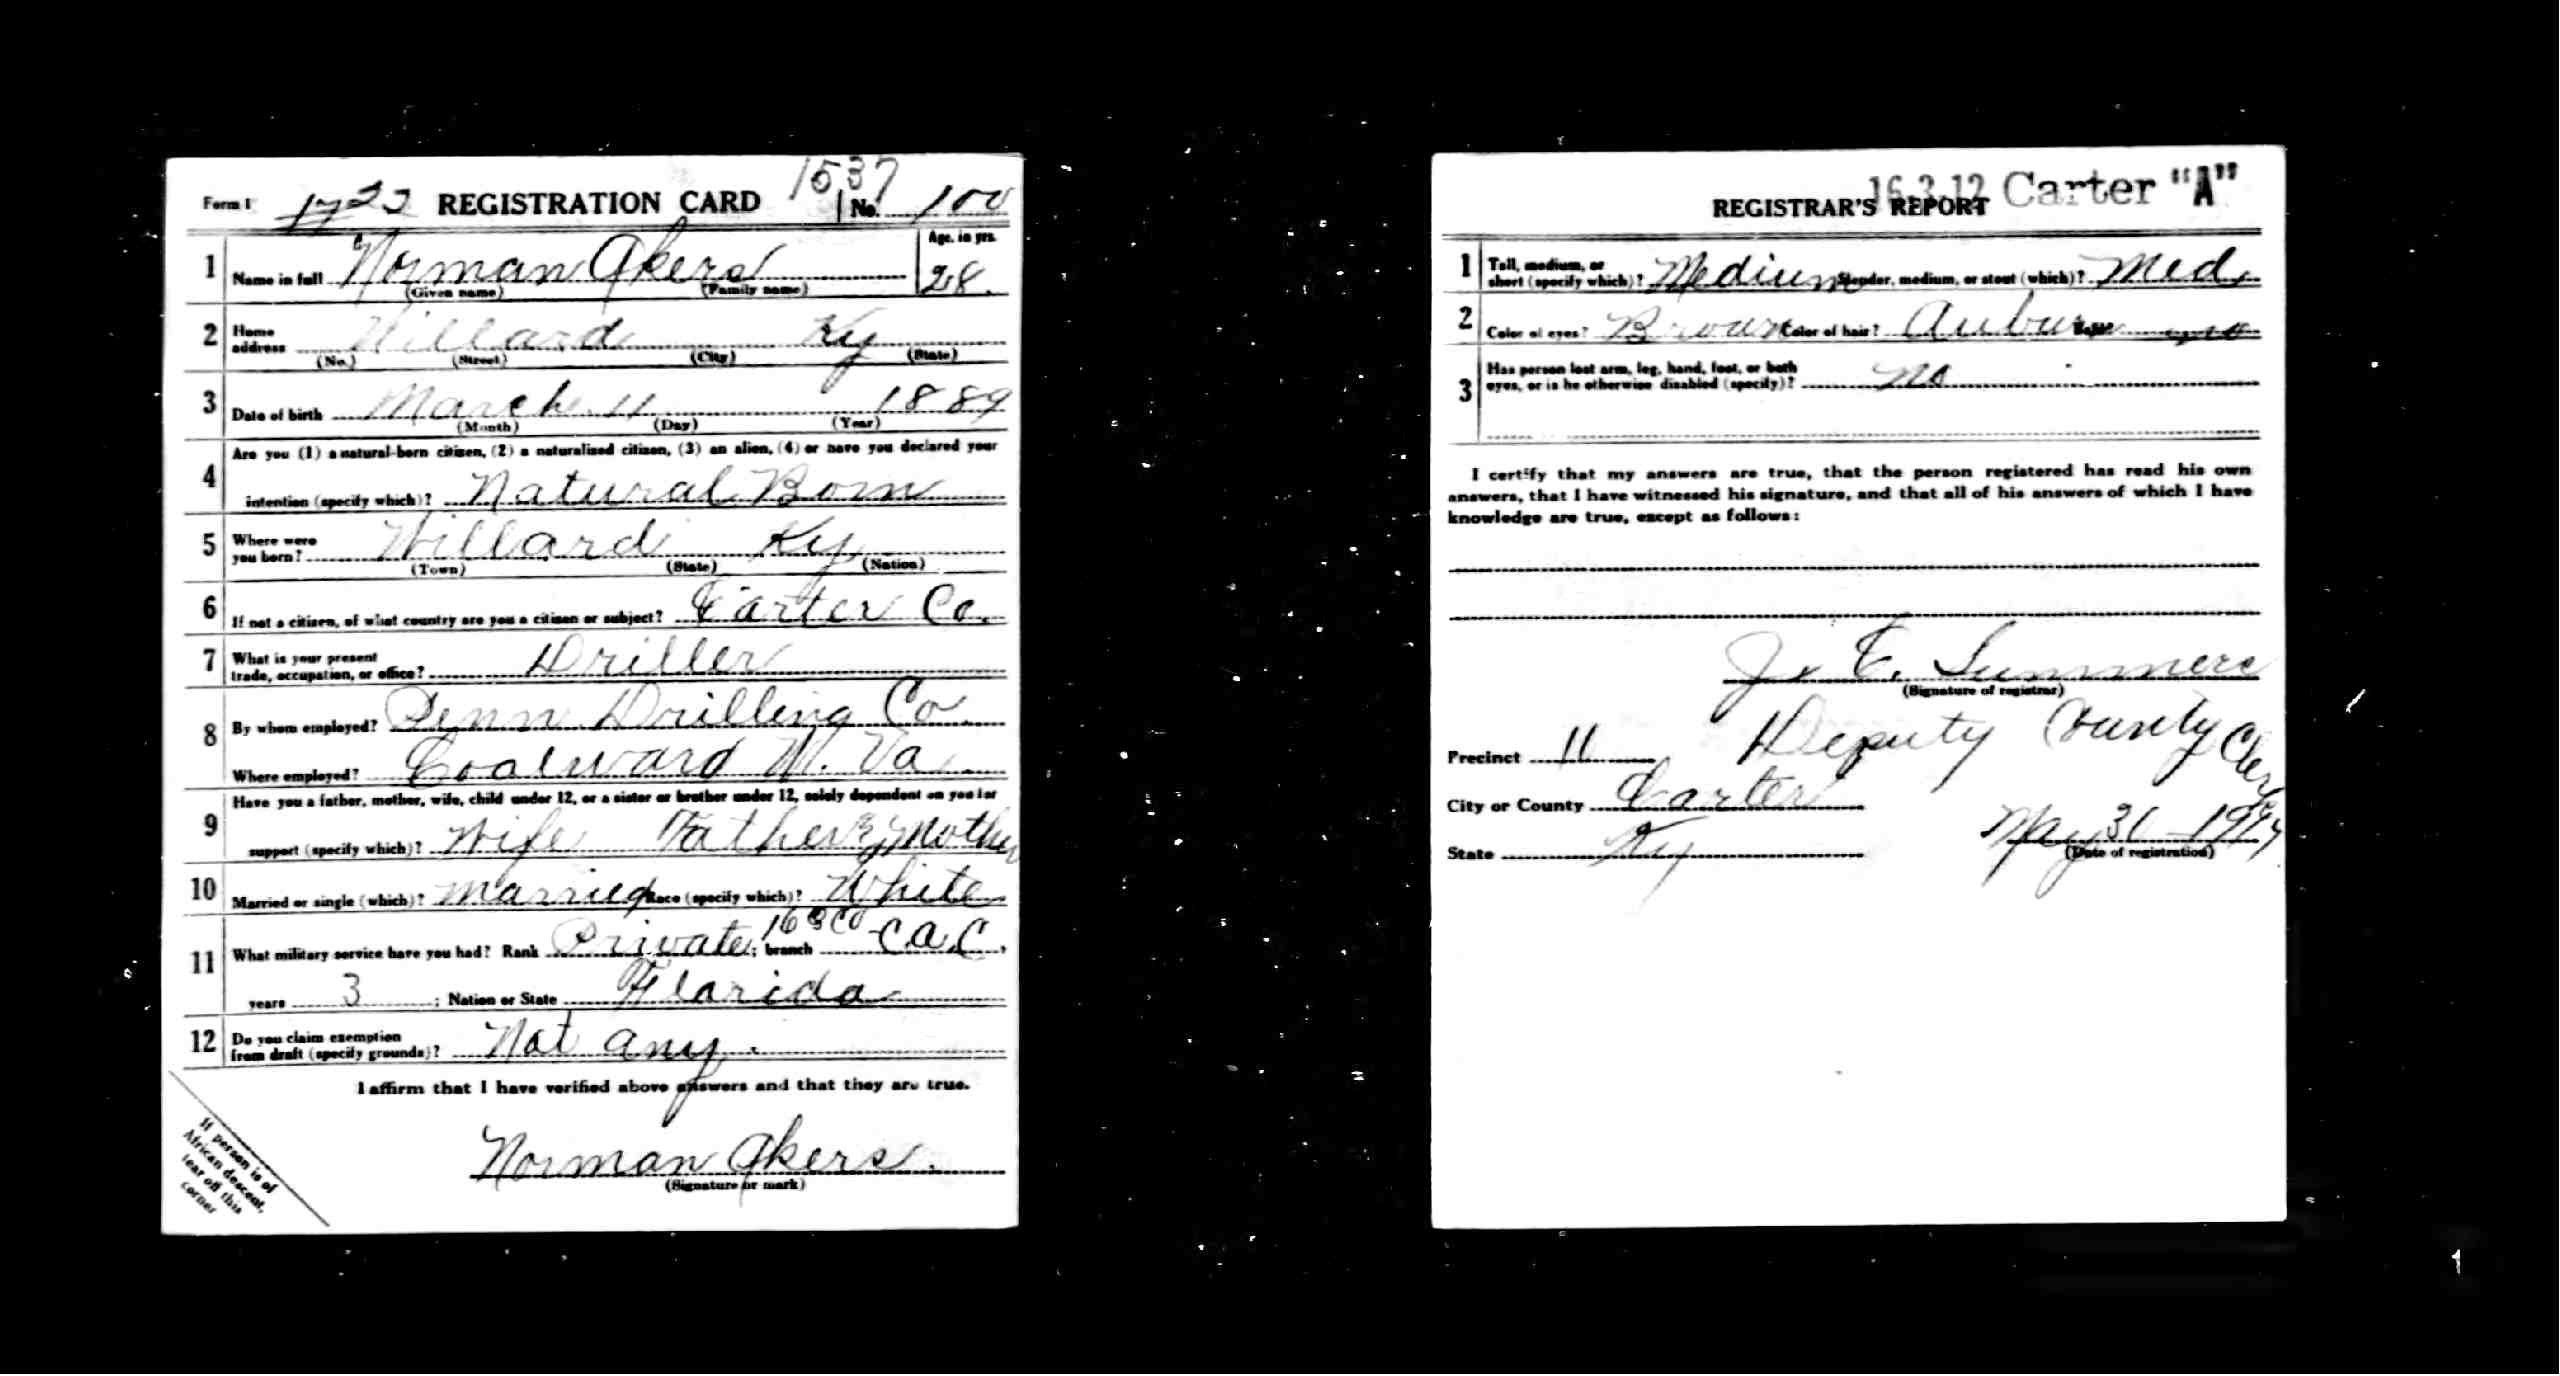 Form 1 1723 REGISTRATION CARD 1537 No. 100
1 Name in full Norman Akers Age, in yrs. 28
(Given name) (Family name)
2 Home address Willard Ky
(No.) (Street) (City) (State)
3 Date of birth March 11 1889
(Month) (Day) (Year)
4 Are you (1) a natural-born citizen, (2) a naturalized citizen, (3) an alien, (4) or have you declared your
intention (specify which)? Natural Born
5 Where were you born? Willard Ky
(Town) (State) (Nation)
6 If not a citizen, of what country are you a citizen or subject? Carter Co.
7 What is your present trade, occupation, or office? Driller
8 By whom employed? Penn Drilling Co
Where employed? Coalwood W. Va
9 Have you a father, mother, wife, child under 12, or a sister or brother under 12, solely dependent on you for
support (specify which)? Wife Father & Mother
10 Married or single (which)? Married Race (specify which)? White
11 What military service have you had? Rank Private; branch 163 Co C.A.C.
years 3; Nation or State Florida
12 Do you claim exemption from draft (specify grounds)? Not any.
I affirm that I have verified above answers and that they are true.
Norman Akers.
(Signature or mark)
If person is of
African descent,
tear off this
corner
16.3.12 Carter "A"
REGISTRAR'S REPORT
1 Tall, medium, or short (specify which)? Medium Slender, medium, or stout (which)? Med.
2 Color of eyes? Brown Color of hair? Auburn Bald? no
3 Has person lost arm, leg, hand, foot, or both
eyes, or is he otherwise disabled (specify)? no
I certify that my answers are true, that the person registered has read his own
answers, that I have witnessed his signature, and that all of his answers of which I have
knowledge are true, except as follows:
J. E. Summers
(Signature of registrar)
Precinct 11 Deputy County Clerk
City or County Carter
State Ky May 31 1917
(Date of registration)
1